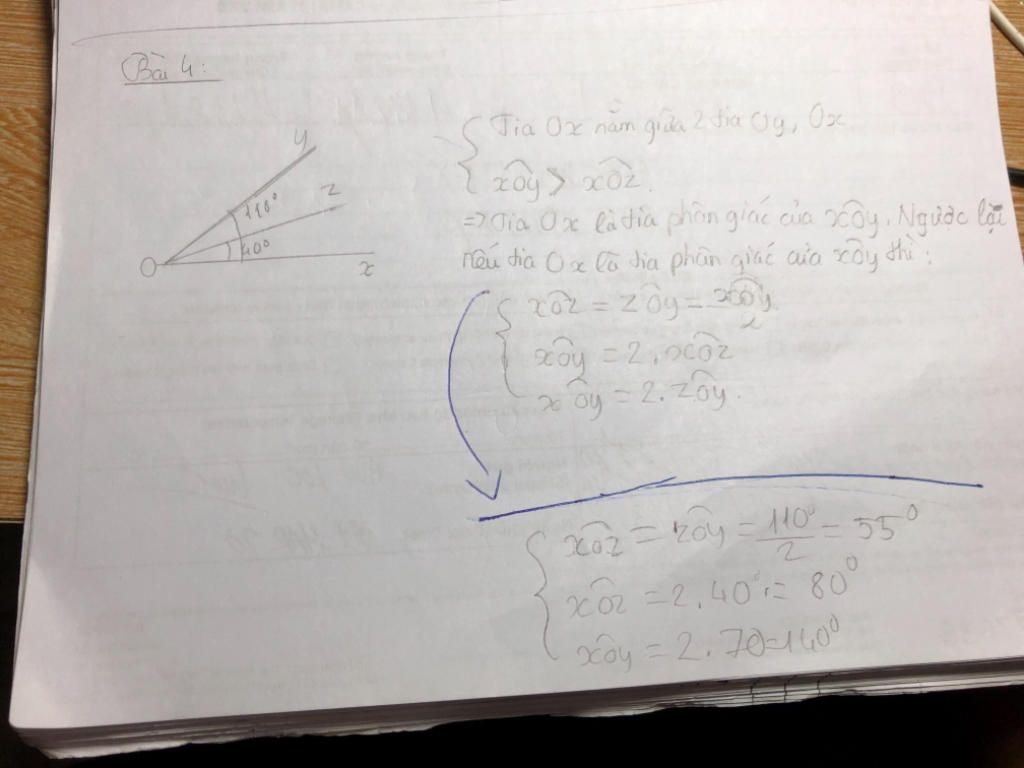 Bài 4:
y
z
110°
40°
O
x
Tia Ox nằm giữa 2 tia Oy, Ox
xÔy > xÔz.
=> Tia Ox là tia phân giác của xÔy. Ngược lại
nếu tia Ox là tia phân giác của xÔy thì:
xÔz = zÔy = xÔy/2
xÔy = 2.xÔz
xÔy = 2.zÔy.
xÔz = zÔy = 110°/2 = 55°
xÔz = 2.40° = 80°
xÔy = 2.70=140°